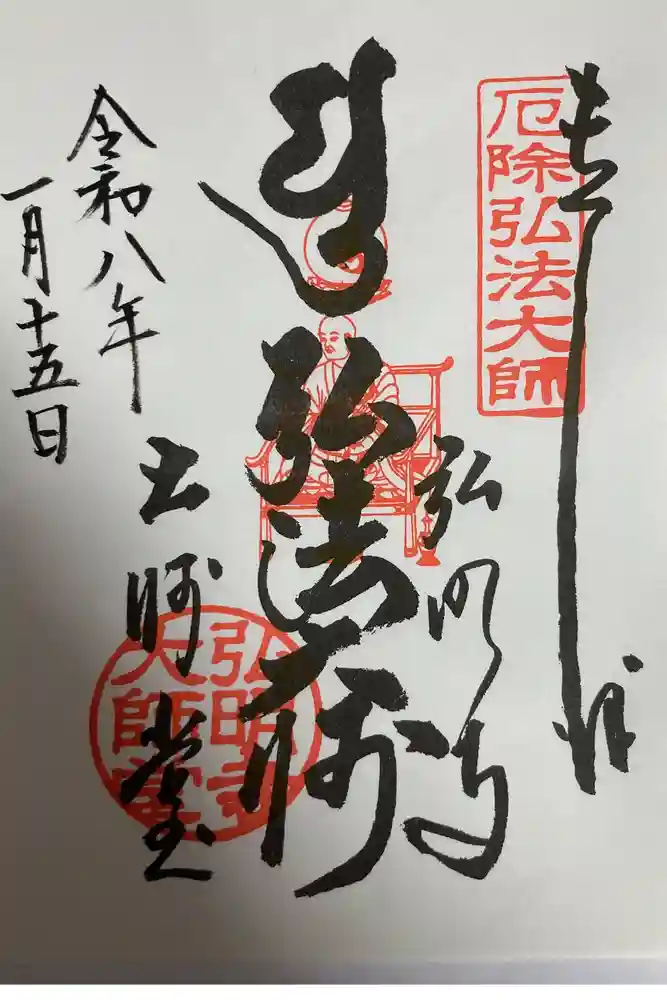 奉拝
厄除弘法大師
弘明寺
弘法大師
大師堂
弘明寺
大師堂
令和八年
一月十五日